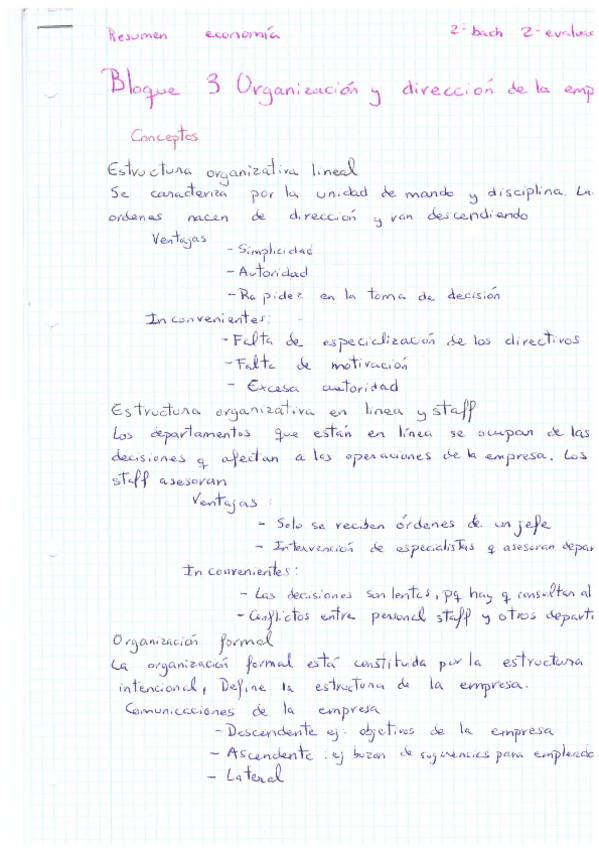 Resumen economía 2º bach 2º evaluac
Bloque 3 Organización y dirección de la emp
Conceptos
Estructura organizativa lineal
Se caracteriza por la unidad de mando y disciplina. La
ordenes nacen de dirección y van descendiendo
Ventajas
- Simplicidad
- Autoridad
- Rapidez en la toma de decisión
Inconvenientes:
- Falta de especialización de los directivos
- Falta de motivación
- Excesa autoridad
Estructura organizativa en linea y staff
Los departamentos que están en línea se ocupan de las
decisiones q afectan a las operaciones de la empresa. Los
staff asesoran
Ventajas:
- Solo se reciben órdenes de un jefe
- Intervención de especialistas q asesoran depar
Inconvenientes:
- Las decisiones son lentas, pq hay q consultar al
- Conflictos entre personal staff y otros departa
Organización formal
La organización formal está constituida por la estructura
intencional, Define la estructura de la empresa.
Comunicaciones de la empresa
- Descendente ej. objetivos de la empresa
- Ascendente: ej buzon de sugerencias para empleado
- Lateral